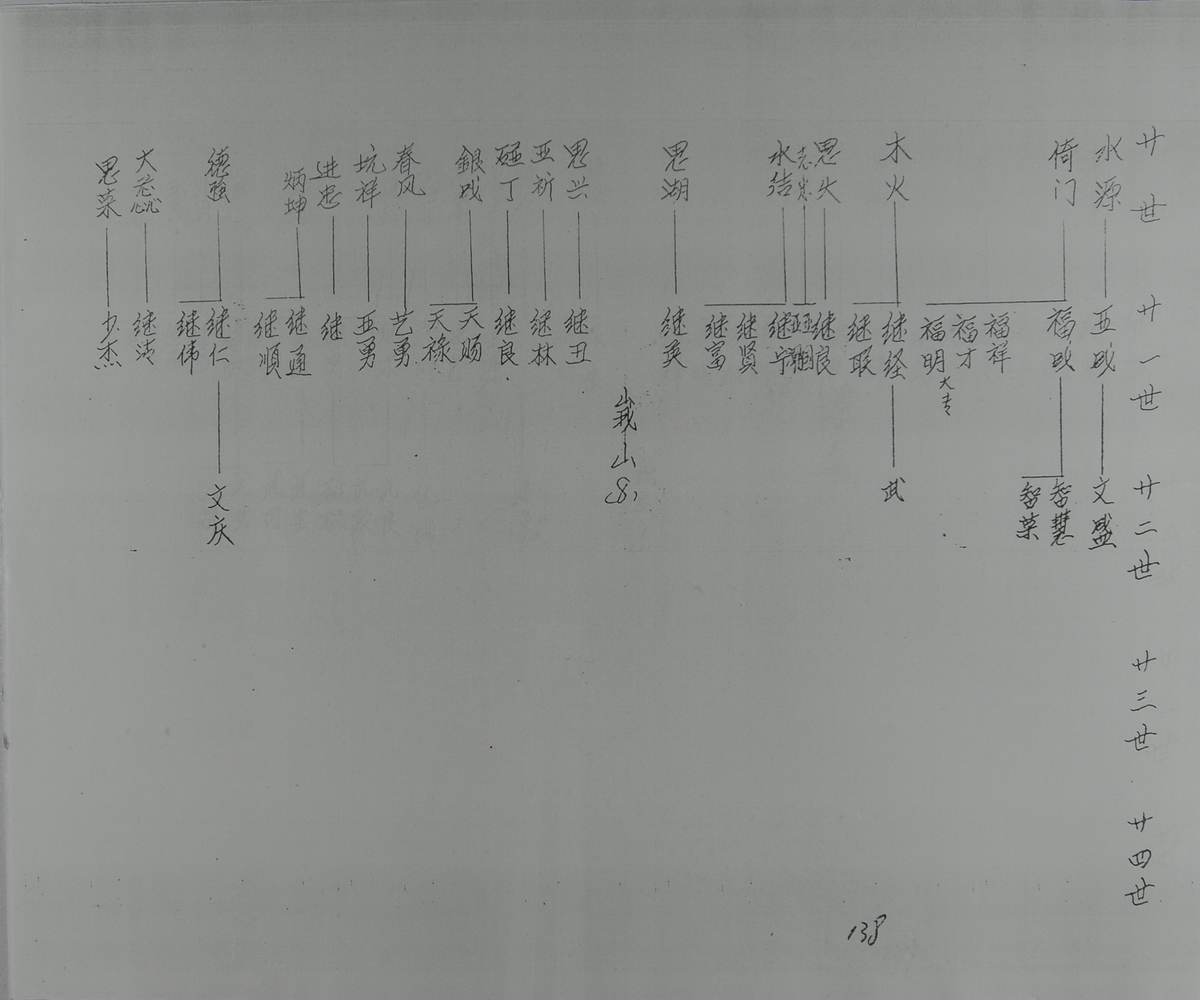 廿世 廿一世 廿二世 廿三世 廿四世
水源 亚成 文盛
倚门 福成 智慧
智荣
福祥
福才
福明 大专
木火 继经 武
继联
思火 继良
水结 继宁
继贤
继富
思湖 继英
峩山(8)
思兴 继丑
亚祈 继林
碰丁 继良
银成 天赐
天禄
春风 艺勇
坑祥 亚勇
进忠 继
炳坤 继通
继顺
德强 继仁 文庆
继伟
大 继清
思荣 少杰
138